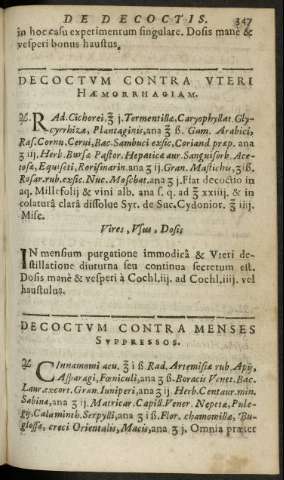 DE DECOCTIS. 347
in hoc casu experimentum singulare. Dosis manè &
vesperi bonus haustus.
DECOCTVM CONTRA VTERI
HÆMORRHAGIAM.
℞ Ad. Cichorei. ℥ j. Tormentillæ, Caryophyllat. Gly-
cyrrhizæ, Plantaginis, ana ʒ ß. Gum. Arabici,
Ras. Cornu. Cerui, Bac. Sambuci exsic, Coriand præp. ana
ʒ iij. Herb. Bursæ Pastor. Hepaticæ aur. Sanguisorb. Ace-
tosæ, Equiseti, Rorismarin. ana ʒ ij. Gran. Mastichu, ʒ iß.
Rosar. rub. exsic. Nuc. Moschat. ana ʒ j. Fiat decoctio in
aq. Millefolij & vini alb. ana s. q. ad ℥ xxiiij, & in
colaturâ clarâ dissolue Syr. de Suc. Cydonior. ℥ iiij.
Misc.
Vires, Vsus, Dosis
IN mensium purgatione immodicâ & Vteri de-
stillatione diuturna seu continua secretum est.
Dosis manè & vesperi à Cochl. iij. ad Cochl. iiij. vel
haustulus.
DECOCTVM CONTRA MENSES
SVPPRESSOS.
CInnamomi acu. ℥ i ß Rad. Artemisiæ rub. Apij,
Asparagi, Fœniculi, ana ʒ ß. Boracis Venet. Bac.
Lauræ excort. Gran. Iuniperi, ana ʒ iij Herb. Centaur. min.
Sabinæ, ana ʒ ij. Matricar. Capill. Vener. Nepetæ, Pule-
gij. Calaminth. Serpylli, ana ʒ i ß. Flor. chamomillæ, Bu-
glossæ, croci Orientalis, Macis, ana ʒ j. Omnia præter